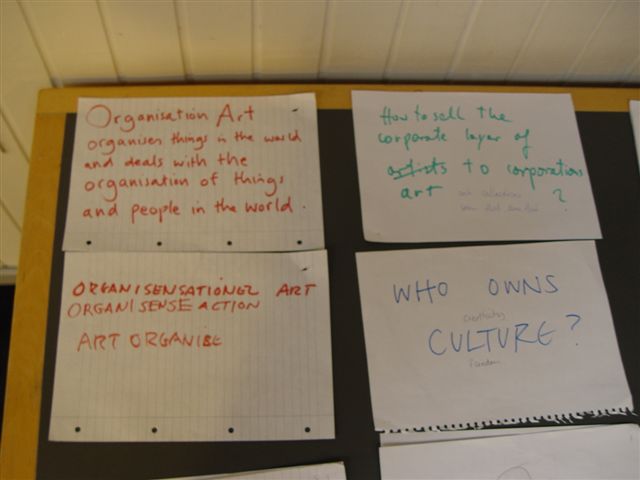 Organisation Art
organises things in the world
and deals with the
organisation of things
and people in the world.
How to sell the
corporate layer of
artists to corporations
art
?
ORGANISENSATIONEL ART
ORGANISENSE ACTION
ART ORGANISE
WHO OWNS
creativity
CULTURE?
freedom